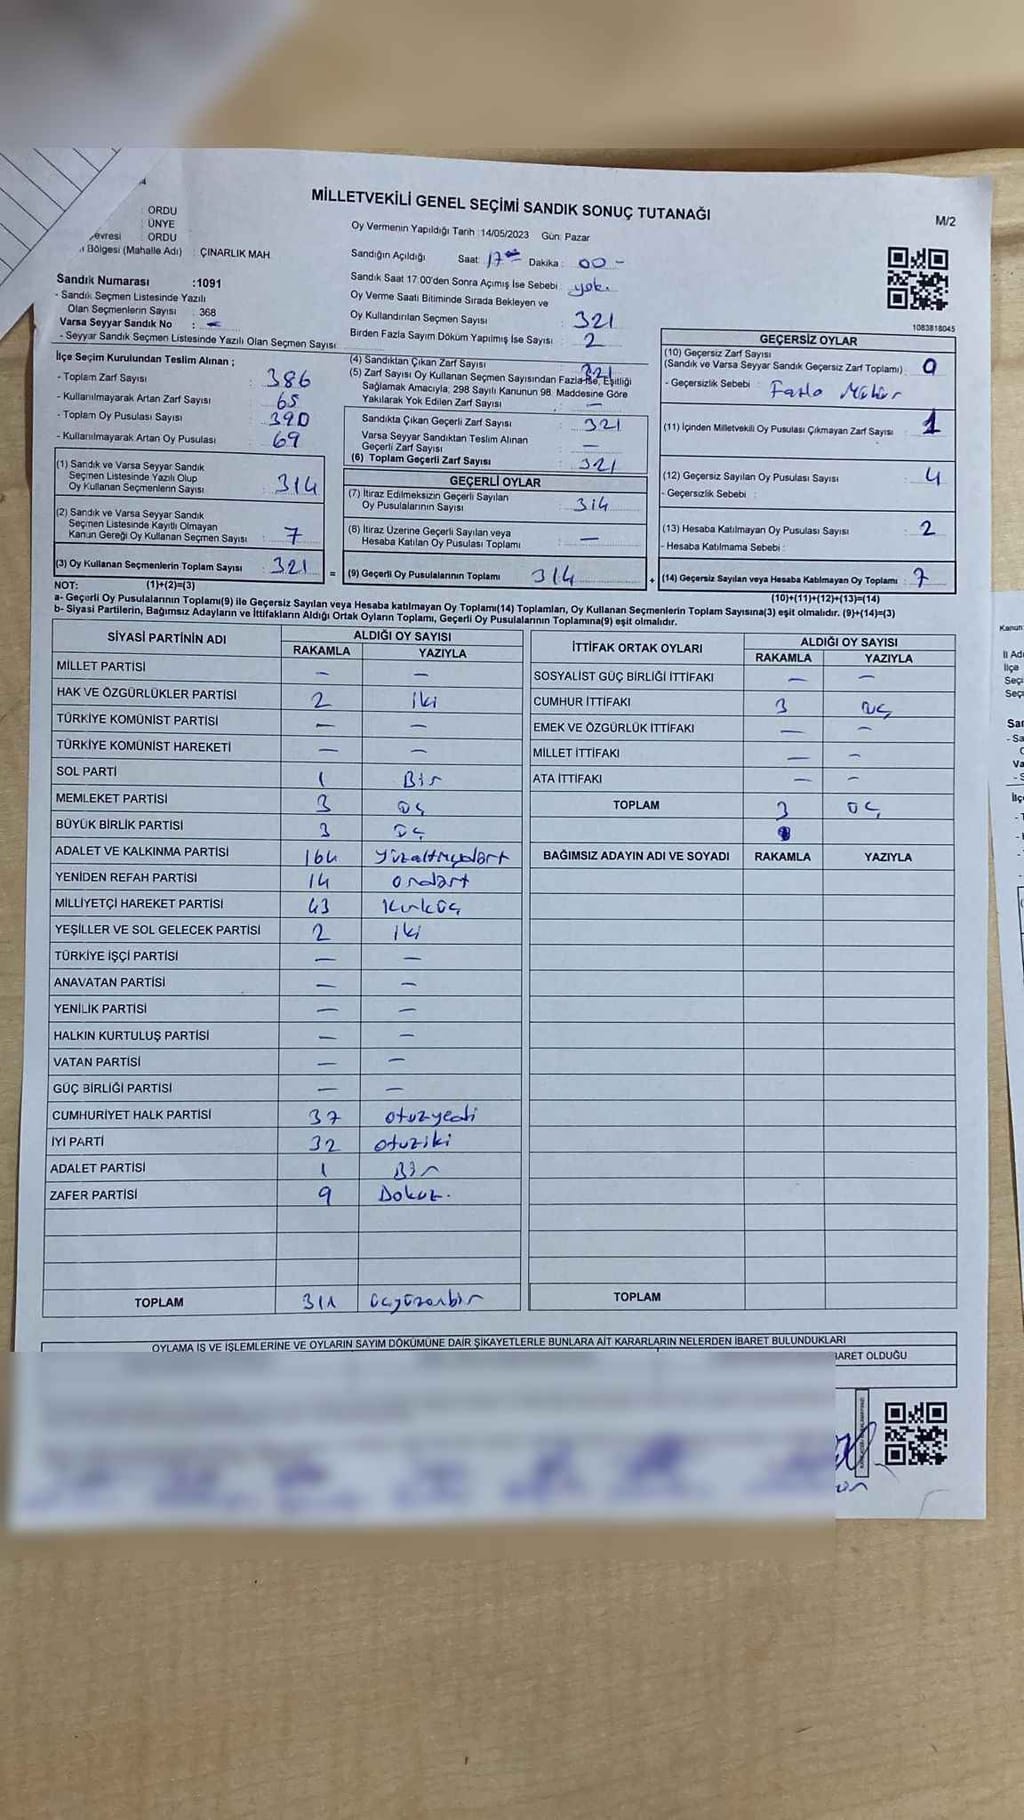 MİLLETVEKİLİ GENEL SEÇİMİ SANDIK SONUÇ TUTANAĞI
M/2
ORDU
ÜNYE
ORDU
Bölgesi (Mahalle Adı) : ÇINARLIK MAH
Sandık Numarası :1091
- Sandık Seçmen Listesinde Yazılı
Olan Seçmenlerin Sayısı : 368
Varsa Seyyar Sandık No : -
- Seyyar Sandık Seçmen Listesinde Yazılı Olan Seçmen Sayısı
Oy Vermenin Yapıldığı Tarih :14/05/2023 Gün: Pazar
Sandığın Açıldığı Saat: 17 Dakika : 00 -
Sandık Saat 17:00'den Sonra Açımış İse Sebebi : yok.
Oy Verme Saati Bitiminde Sırada Bekleyen ve
Oy Kullandırılan Seçmen Sayısı : 321
Birden Fazla Sayım Döküm Yapılmış İse Sayısı : 2
1083818045
İlçe Seçim Kurulundan Teslim Alınan ;
- Toplam Zarf Sayısı : 386
- Kullanılmayarak Artan Zarf Sayısı : 65
- Toplam Oy Pusulası Sayısı : 390
- Kullanılmayarak Artan Oy Pusulası : 69
(1) Sandık ve Varsa Seyyar Sandık
Seçmen Listesinde Yazılı Olup
Oy Kullanan Seçmenlerin Sayısı : 314
(2) Sandık ve Varsa Seyyar Sandık
Seçmen Listesinde Kayıtlı Olmayan
Kanun Gereği Oy Kullanan Seçmen Sayısı : 7
(3) Oy Kullanan Seçmenlerin Toplam Sayısı : 321
(4) Sandıktan Çıkan Zarf Sayısı : 321
(5) Zarf Sayısı Oy Kullanan Seçmen Sayısından Fazla İse, Eşitliği
Sağlamak Amacıyla, 298 Sayılı Kanunun 98. Maddesine Göre
Yakılarak Yok Edilen Zarf Sayısı : —
Sandıkta Çıkan Geçerli Zarf Sayısı : 321
Varsa Seyyar Sandıktan Teslim Alınan
Geçerli Zarf Sayısı : —
(6) Toplam Geçerli Zarf Sayısı : 321
GEÇERLİ OYLAR
(7) İtiraz Edilmeksizin Geçerli Sayılan
Oy Pusulalarının Sayısı : 314
(8) İtiraz Üzerine Geçerli Sayılan veya
Hesaba Katılan Oy Pusulası Toplamı : —
= (9) Geçerli Oy Pusulalarının Toplamı 314
GEÇERSİZ OYLAR
(10) Geçersiz Zarf Sayısı
(Sandık ve Varsa Seyyar Sandık Geçersiz Zarf Toplamı) : 0
- Geçersizlik Sebebi : Fazla Mühür
(11) İçinden Milletvekili Oy Pusulası Çıkmayan Zarf Sayısı : 1
(12) Geçersiz Sayılan Oy Pusulası Sayısı : 4
- Geçersizlik Sebebi :
(13) Hesaba Katılmayan Oy Pusulası Sayısı : 2
- Hesaba Katılmama Sebebi :
+ (14) Geçersiz Sayılan veya Hesaba Katılmayan Oy Toplamı : 7
NOT: (1)+(2)=(3)
(10)+(11)+(12)+(13)=(14)
a- Geçerli Oy Pusulalarının Toplamı(9) ile Geçersiz Sayılan veya Hesaba katılmayan Oy Toplamı(14) Toplamları, Oy Kullanan Seçmenlerin Toplam Sayısına(3) eşit olmalıdır. (9)+(14)=(3)
b- Siyasi Partilerin, Bağımsız Adayların ve İttifakların Aldığı Ortak Oyların Toplamı, Geçerli Oy Pusulalarının Toplamına(9) eşit olmalıdır.
SİYASİ PARTİNİN ADI ALDIĞI OY SAYISI
RAKAMLA YAZIYLA
MİLLET PARTİSİ — —
HAK VE ÖZGÜRLÜKLER PARTİSİ 2 iki
TÜRKİYE KOMÜNİST PARTİSİ — —
TÜRKİYE KOMÜNİST HAREKETİ — —
SOL PARTİ 1 Bir
MEMLEKET PARTİSİ 3 üç
BÜYÜK BİRLİK PARTİSİ 3 üç
ADALET VE KALKINMA PARTİSİ 164 yüzaltmışdört
YENİDEN REFAH PARTİSİ 14 ondört
MİLLİYETÇİ HAREKET PARTİSİ 43 Kırküç
YEŞİLLER VE SOL GELECEK PARTİSİ 2 iki
TÜRKİYE İŞÇİ PARTİSİ — —
ANAVATAN PARTİSİ — —
YENİLİK PARTİSİ — —
HALKIN KURTULUŞ PARTİSİ — —
VATAN PARTİSİ — —
GÜÇ BİRLİĞİ PARTİSİ — —
CUMHURİYET HALK PARTİSİ 37 otuzyedi
İYİ PARTİ 32 otuziki
ADALET PARTİSİ 1 Bir
ZAFER PARTİSİ 9 Dokuz.
TOPLAM 311 üçyüzonbir
İTTİFAK ORTAK OYLARI ALDIĞI OY SAYISI
RAKAMLA YAZIYLA
SOSYALİST GÜÇ BİRLİĞİ İTTİFAKI — —
CUMHUR İTTİFAKI 3 üç
EMEK VE ÖZGÜRLÜK İTTİFAKI — —
MİLLET İTTİFAKI — —
ATA İTTİFAKI — —
TOPLAM 3 üç
BAĞIMSIZ ADAYIN ADI VE SOYADI RAKAMLA YAZIYLA
TOPLAM
OYLAMA İŞ VE İŞLEMLERİNE VE OYLARIN SAYIM DÖKÜMÜNE DAİR ŞİKAYETLERLE BUNLARA AİT KARARLARIN NELERDEN İBARET BULUNDUKLARI
BARET OLDUĞU